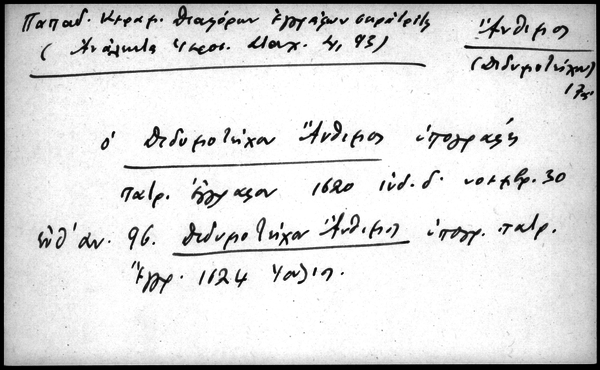 Παπαδ. Κεραμ. Διαφόρων Ἐγγράφων
(Ἀνάλεκτα Ἱεροσ. Σταχ. 4, 93)
Ἄνθιμος
(Διδυμοτείχου)
ὁ Διδυμοτείχου Ἄνθιμος ὑπογραφή
πατρ. ἔγγραφον 1620 ἰνδ. δ. νοεμβρ. 30
αὐθ' ἀν. 96. Διδυμοτείχου Ἄνθιμος ὑπογρ. πατρ.
ἔγγρ. 1624 Ἰουλίῳ.